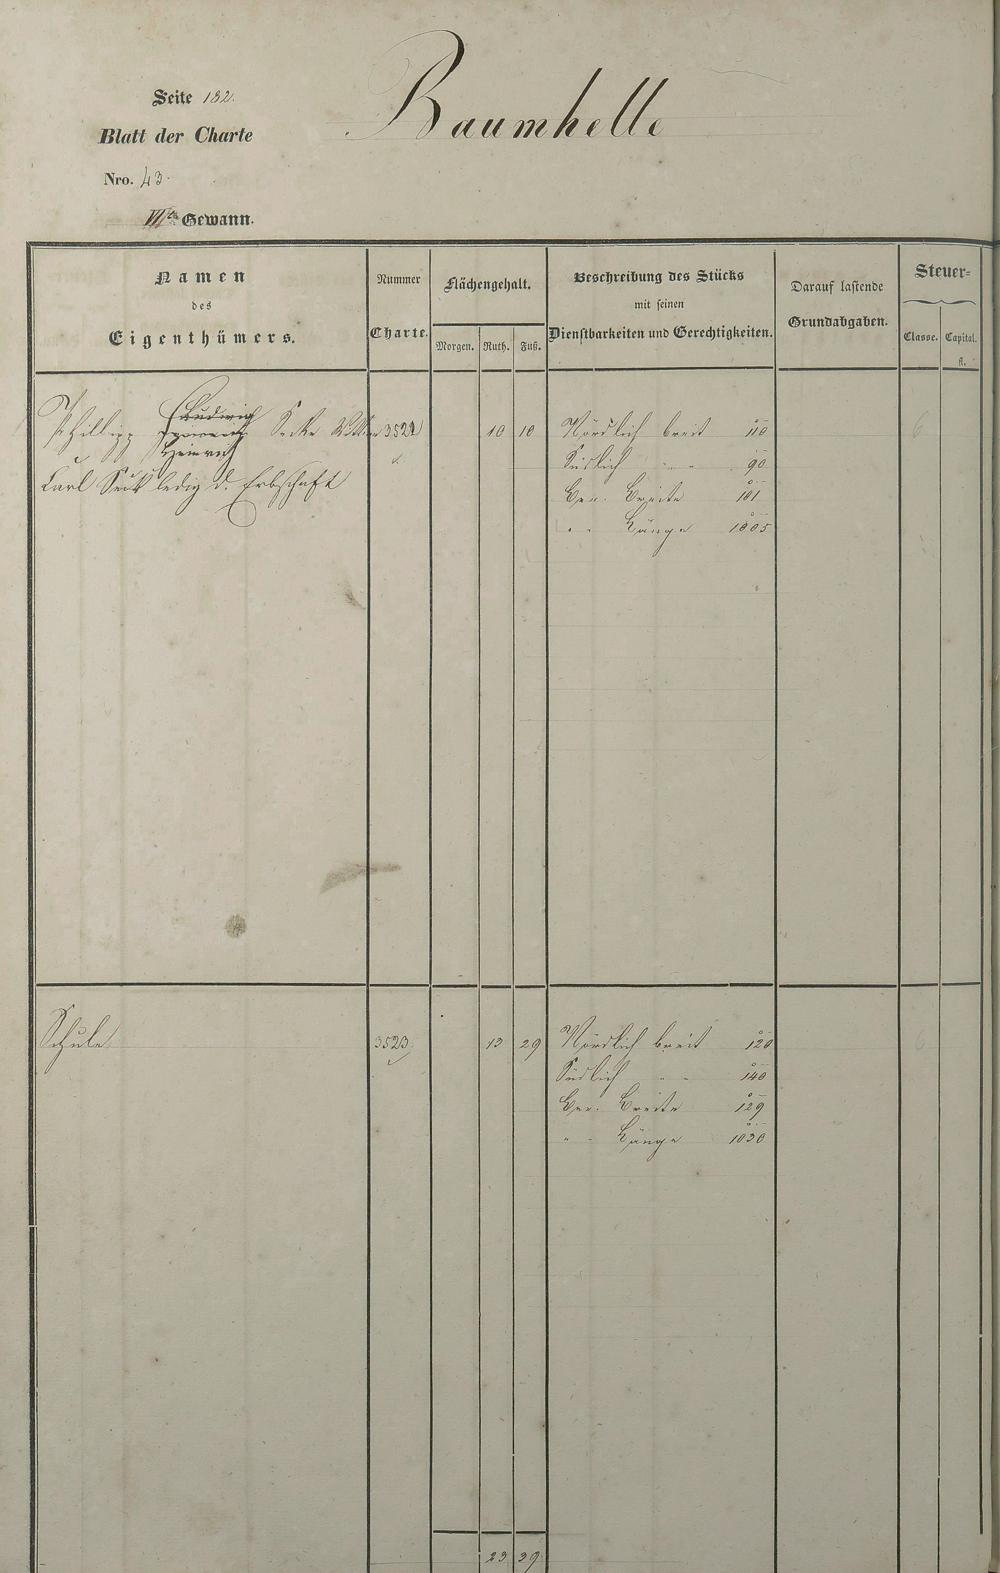 Seite 182.
Baumhelle
Blatt der Charte
Nro. 43.
VIIte Gewann.
Namen
des
Eigenthümers.
Nummer
Charte.
Flächengehalt.
Morgen. Ruth. Fuß.
Beschreibung des Stücks
mit seinen
Dienstbarkeiten und Gerechtigkeiten.
Darauf lastende
Grundabgaben.
Steuer=
Classe. Capital.
fl.
Ludwig
Philipp Seck 3522 10 10 Nördlich breit 110 6
Heinrich
Südlich " " 90
Carl Seck ledig d. Erbschaft
Ger. Breite 101
" " Länge 1005
Schule 3523 13 29 Nördlich breit 120 6
Südlich " " 140
Ger. Breite 129
" " Länge 1030
23 39